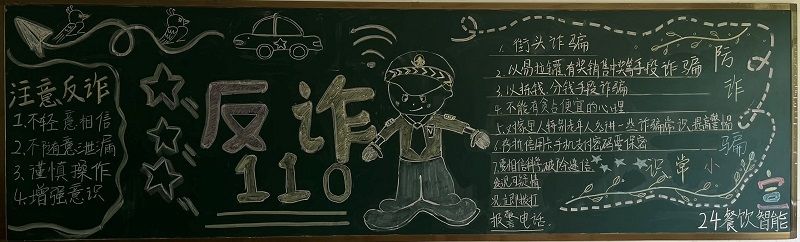 注意反诈
1.不轻意相信
2.不随意泄漏
3.谨慎操作
4.增强意识
反诈
110
1.街头诈骗
2.以易拉罐有奖销售中奖等手段诈骗
3.以拆钱、分钱手段诈骗
4.不能有贪占便宜的心理
5.对家里人特别老年人多讲一些诈骗常识,提高警惕
6.存折信用卡手机支付密码要保密
7.要相信科学破除迷信
报警电话.
防诈骗
小常识
24餐饮智能